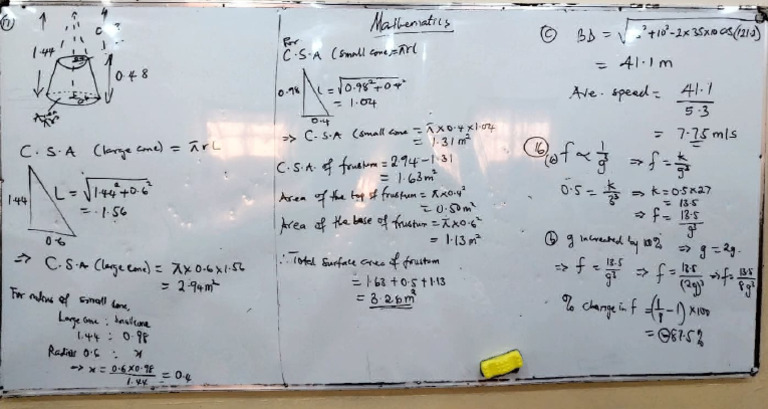 1.44
0.48
C.S.A (large cone) = πrL
1.44
L = √1.44² + 0.6²
= 1.56
0.6
=> C.S.A (large cone) = π x 0.6 x 1.56
= 2.94m²
For radius of small cone,
Large cone : small cone
1.44 : 0.98
Radius 0.6 : x
→ x = 0.6 x 0.98 / 1.44 = 0.4
Mathematics
For
C.S.A (small cone) = πrl
0.98
L = √0.98² + 0.4²
= 1.04
0.4
=> C.S.A (small cone = π x 0.4 x 1.04
= 1.31 m²
C.S.A. of frustum = 2.94 - 1.31
= 1.63m²
Area of the top of frustum = π x 0.4²
= 0.50m²
Area of the base of frustum = π x 0.6²
= 1.13m²
∴ Total surface area of frustum
= 1.63 + 0.5 + 1.13
= 3.26m²
(c) BD =
= 41.1 m
Ave. speed = 41.1 / 5.3
= 7.75 m/s
16
(a) f ∝ 1/g³ => f = k/g³
0.5 = k/3³ => k = 0.5 x 27
= 13.5
=> f = 13.5/g³
(b) g increased by 100% => g = 2g.
=> f = 13.5/g³ => f = 13.5/(2g)³ => f = 13.5/8g³
% change in f = (1/8 - 1) x 100
= -87.5%